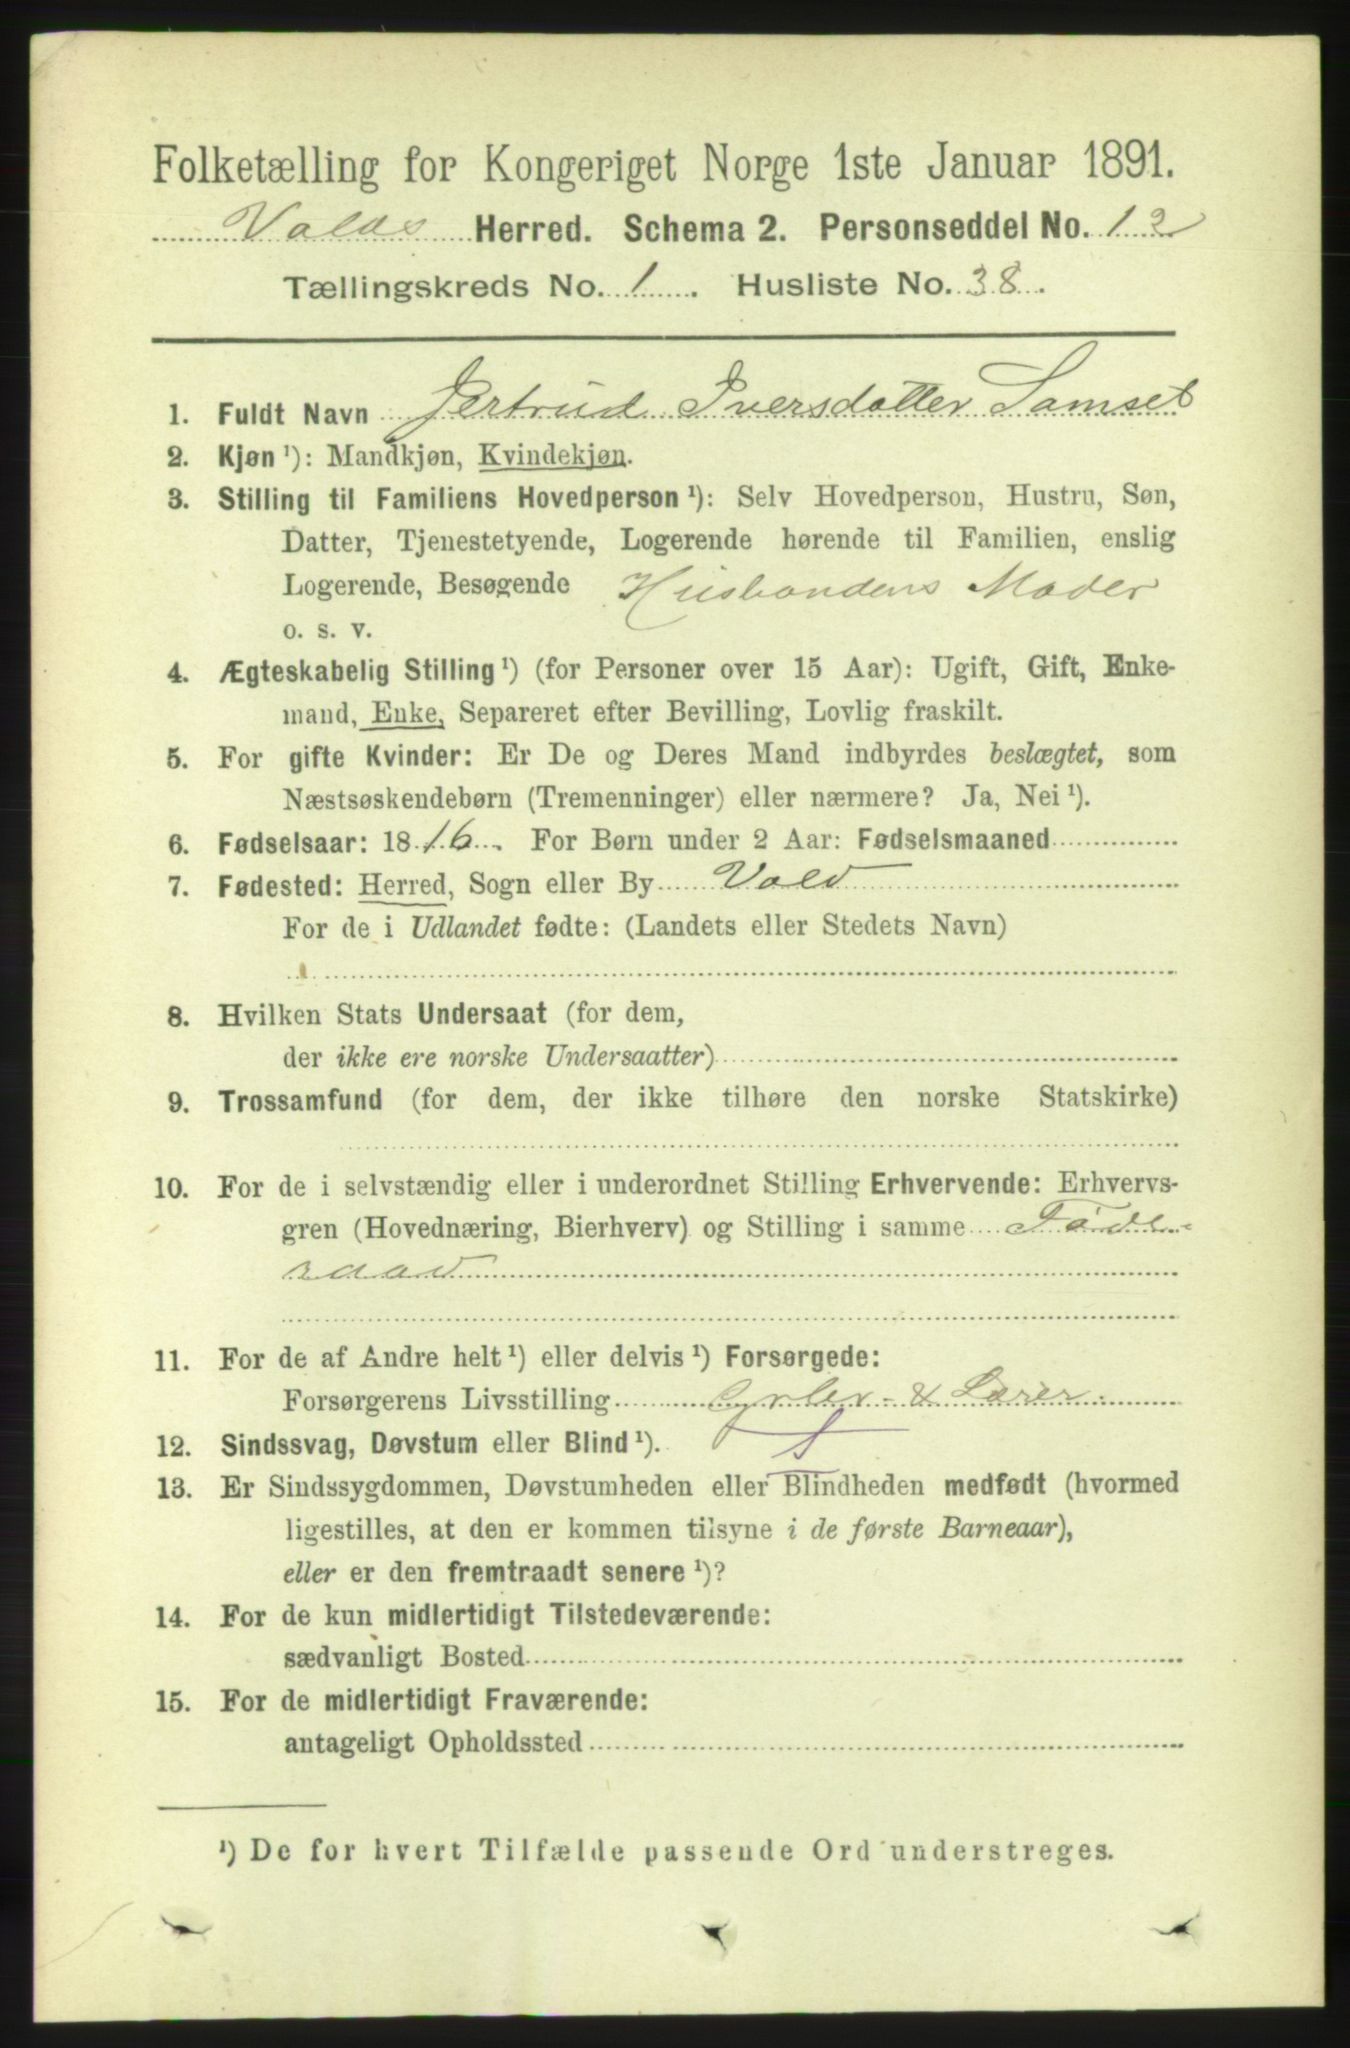 Folketælling for Kongeriget Norge 1ste Januar 1891.
Volds Herred. Schema 2. Personseddel No. 12
Tællingskreds No. 1. Husliste No. 38.
1. Fuldt Navn Jertrud Iversdatter Samset
2. Kjøn ¹): Mandkjøn, Kvindekjøn.
3. Stilling til Familiens Hovedperson ¹): Selv Hovedperson, Hustru, Søn,
Datter, Tjenestetyende, Logerende hørende til Familien, enslig
Logerende, Besøgende Husbondens Moder
o. s. v.
4. Ægteskabelig Stilling ¹) (for Personer over 15 Aar): Ugift, Gift, Enke-
mand, Enke, Separeret efter Bevilling, Lovlig fraskilt.
5. For gifte Kvinder: Er De og Deres Mand indbyrdes beslægtet, som
Næstsøskendebørn (Tremenninger) eller nærmere? Ja, Nei ¹).
6. Fødselsaar: 1816. For Børn under 2 Aar: Fødselsmaaned
7. Fødested: Herred, Sogn eller By Vold
For de i Udlandet fødte: (Landets eller Stedets Navn)
8. Hvilken Stats Undersaat (for dem,
der ikke ere norske Undersaatter)
9. Trossamfund (for dem, der ikke tilhøre den norske Statskirke)
10. For de i selvstændig eller i underordnet Stilling Erhvervende: Erhvervs-
gren (Hovednæring, Bierhverv) og Stilling i samme Føde-
raad
11. For de af Andre helt ¹) eller delvis ¹) Forsørgede:
Forsørgerens Livsstilling & Lærer.
12. Sindssvag, Døvstum eller Blind ¹).
13. Er Sindssygdommen, Døvstumheden eller Blindheden medfødt (hvormed
ligestilles, at den er kommen tilsyne i de første Barneaar),
eller er den fremtraadt senere ¹)?
14. For de kun midlertidigt Tilstedeværende:
sædvanligt Bosted
15. For de midlertidigt Fraværende:
antageligt Opholdssted
¹) De for hvert Tilfælde passende Ord understreges.